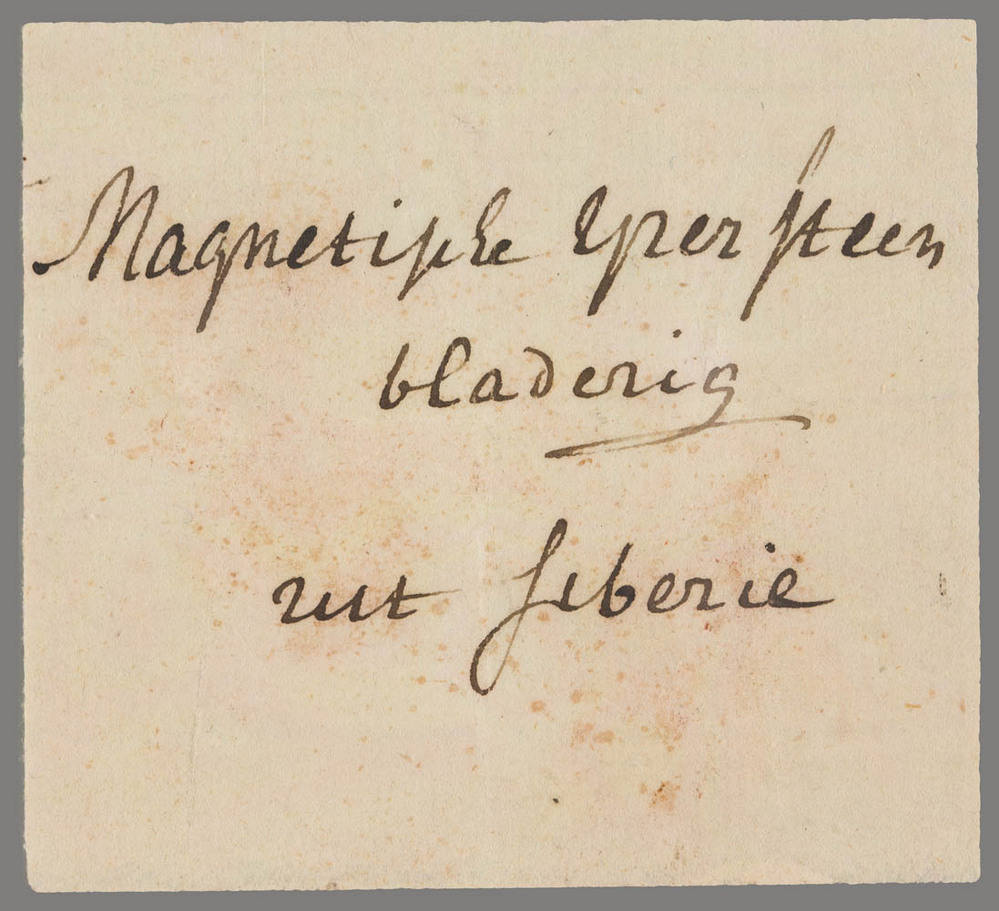 Magnetische Yzersteen
bladerig
uit Siberie